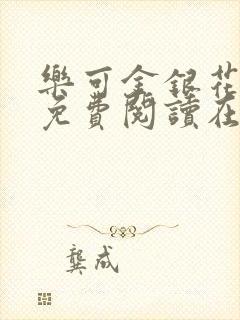 樂可金銀花
免費閱讀在
龔成